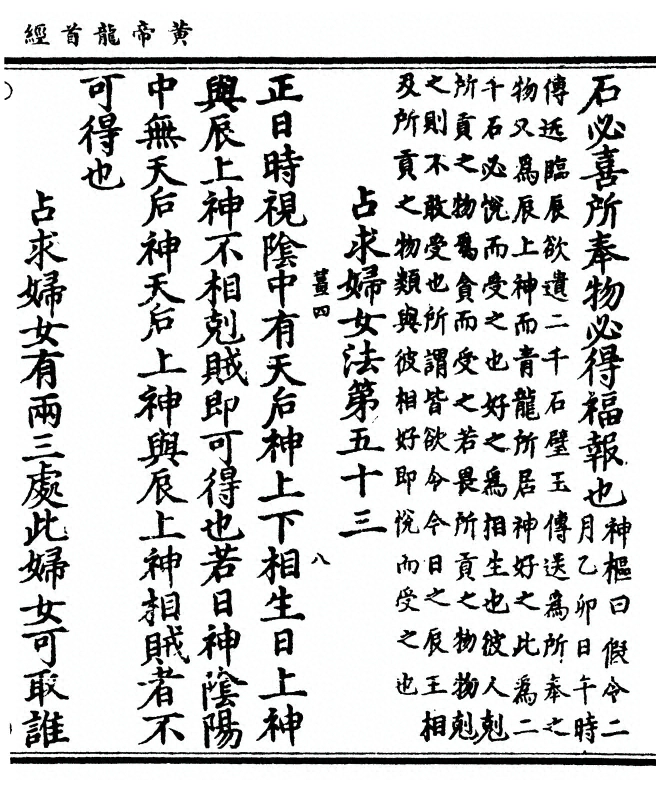 黄帝龍首經
石必喜所奉物必得福報也
神樞曰假令二
月乙卯日午時
傳送臨辰欲遺二千石璧玉傳送爲所奉之
物又爲辰上神而青龍所居神好之此爲二
千石必悅而受之也好之爲相生也彼人剋
所貢之物爲貪而受之若畏所貢之物物剋
之則不敢受也所謂皆欲令今日之辰王相
及所貢之物類與彼相好即悅而受之也
占求婦女法第五十三
薑四
八
正日時視陰中有天后神上下相生日上神
與辰上神不相剋賊即可得也若日神陰陽
中無天后神天后上神與辰上神相賊者不
可得也
占求婦女有兩三處此婦女可取誰